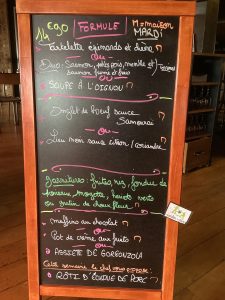 14 €90 FORMULE M = maison
MARDI
Tartelette épinards et chèvre
Ou
Duo: Saumon, petits pois, menthe et
saumon fumé d'
SOUPE À L'OIGNON
Onglet de boeuf sauce
Samourai
Ou
Lieu noir sauce citron / coriandre
Garnitures: frites, riz, fondue de
poireaux, haricots verts
ou gratin de choux fleur
muffins au chocolat
Ou
Pot de crème aux fruits
Ou
ASSIETTE DE GORGONZOLA
Cette semaine le chef vous propose:
RÔTI D'ÉCHINE DE PORC